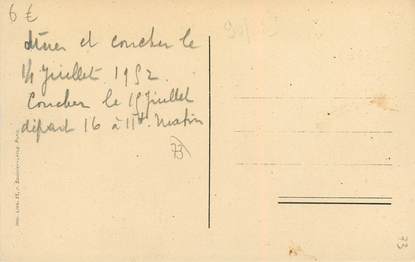 6 €
dîner et coucher le
14 Juillet 1952.
Coucher le 15 Juillet
départ 16 à 11h. Matin
73
73